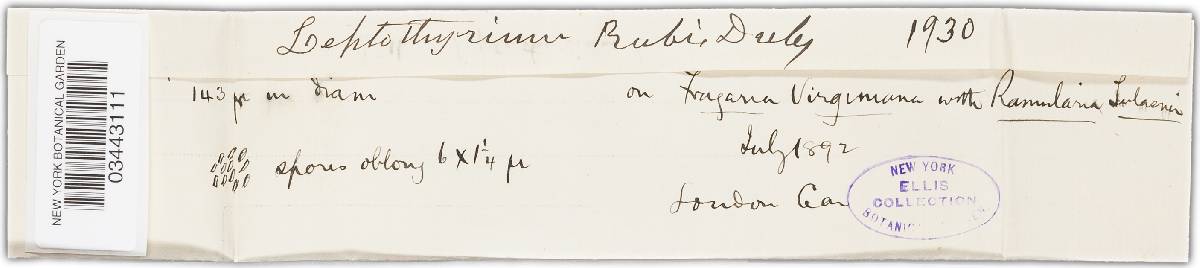 NEW YORK BOTANICAL GARDEN
03443111
Leptothyrium Rubi, Duby 1930
143 µ in diam
spores oblong 6 x 1¼ µ
on Fragaria Virginiana with Ramularia Tulasnei
July 1892
London Can
NEW YORK
ELLIS
COLLECTION
BOTANICAL